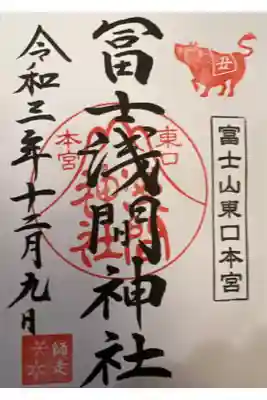 丑
富士山東口本宮
東口
本宮
冨士浅間神社
令和三年十二月九日
師走